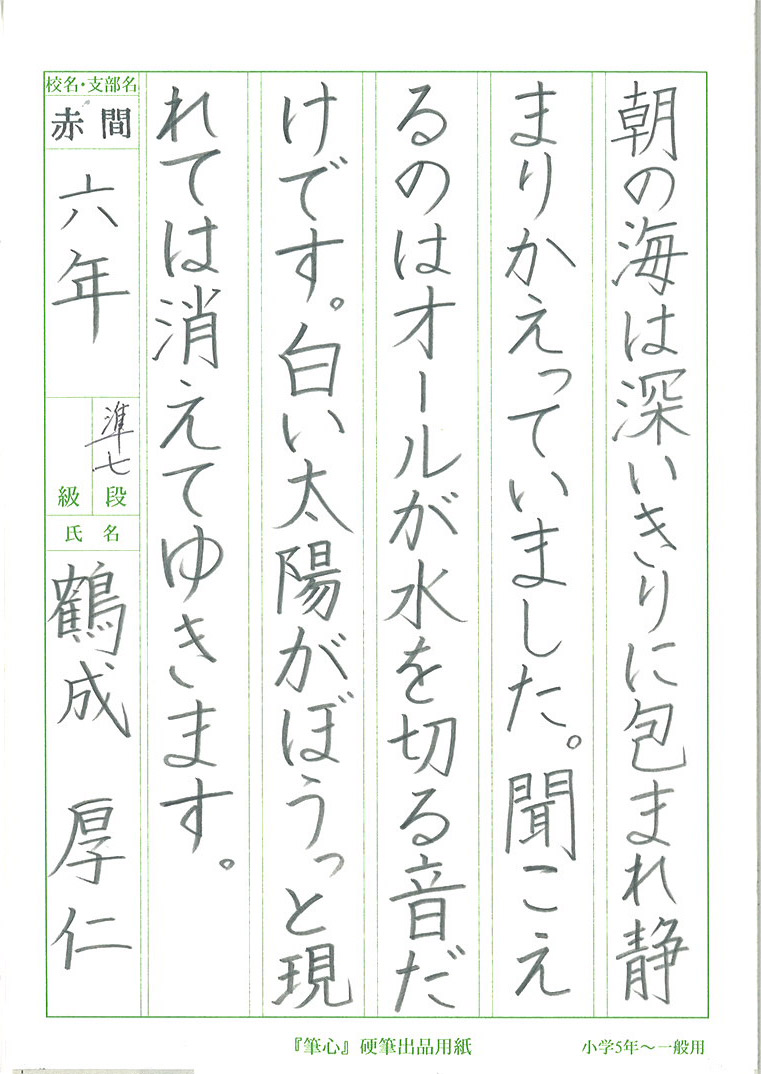 朝の海は深いきりに包まれ静
まりかえっていました。聞こえ
るのはオールが水を切る音だ
けです。白い太陽がぼうっと現
れては消えてゆきます。
校名・支部名
赤間
六年
準七
級 段
氏名
鶴成 厚仁
『筆心』硬筆出品用紙
小学5年〜一般用